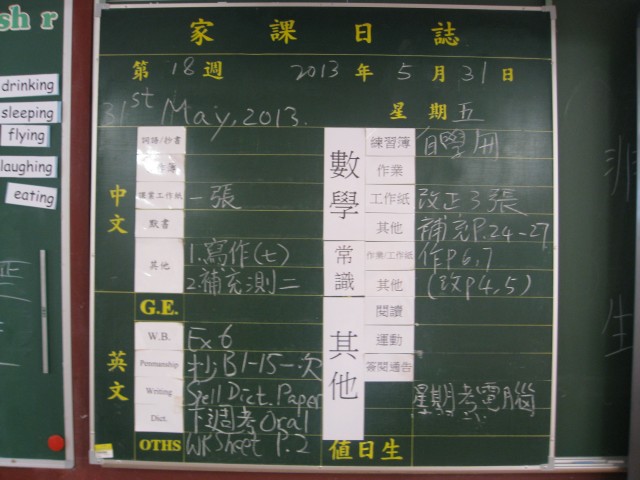 sh r
drinking
sleeping
flying
laughing
eating
家課日誌
第 18 週 2013 年 5 月 31 日
31st May, 2013. 星期 五
中文
詞語/抄書
作業
課業工作紙 一張
默書
其他 1.寫作(七)
2.補充測二
英文
G.E.
W.B. Ex 6
Penmanship 抄B1-15一次
Writing Spell Dict. Paper
Dict. 下週考Oral
OTHS WKSheet P.2
數學
練習簿 自學冊
作業
工作紙 改正3張
其他 補充P.24-27
常識
作業/工作紙 作P6,7
其他 (改P4,5)
其他
閱讀
運動
簽閱通告
星期 考電腦
值日生